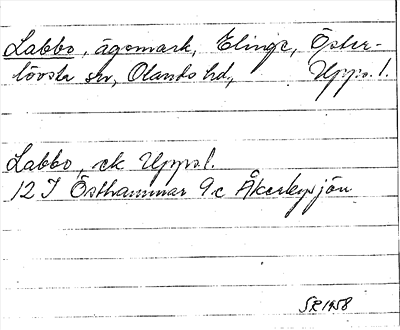 Labbo, ägomark, Elinge, Öster-
lövsta sn, Olands hd, Upps. l.
Labbo, ek Upps l.
12 I Östhammar 9c Åkerbysjön
SR 1958